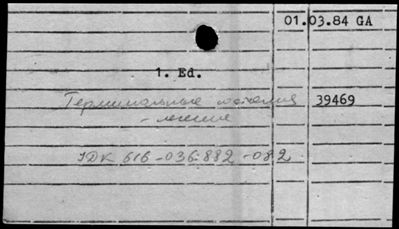 01.03.84 GA
1. Ed.
Терминальные состояния 39469
- лечение
УДК 616-036.882-082